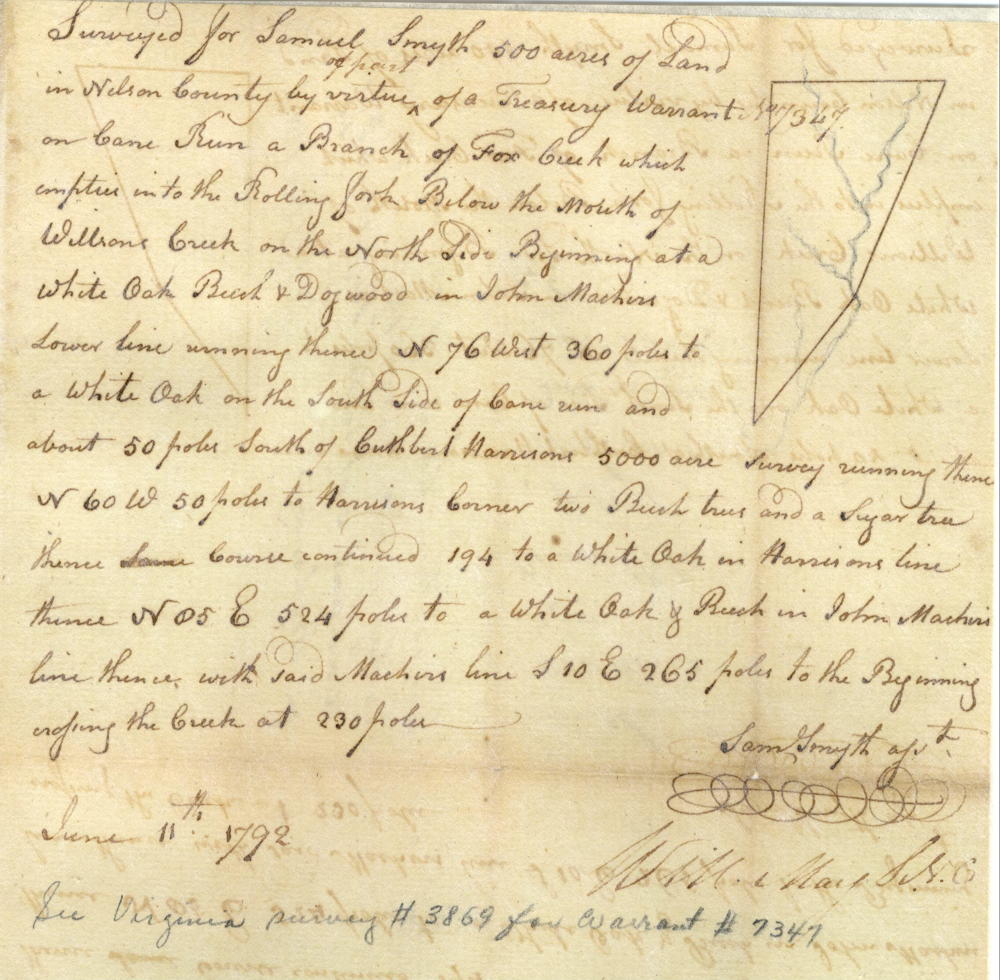 Surveyed for Samuel Smyth 500 acres of Land
of part
in Nelson County by virtue ^ of a Treasury Warrant No 7347
on Cane Run a Branch of Fox Creek which
empties into the Rolling fork Below the Mouth of
Willsons Creek on the North Side Beginning at a
White Oak Beech & Dogwood in John Machirs
Lower line running thence N 76 West 360 poles to
a White Oak on the South Side of Cane run and
about 50 poles South of Cuthbert Harrisons 5000 acre survey running thence
N 60 W 50 poles to Harrisons Corner two Beech trees and a Sugar tree
thence Same Course continued 194 to a White Oak in Harrisons line
thence N 85 E 524 poles to a White Oak & Beech in John Machirs
line thence with said Machirs line S 10 E 265 poles to the Beginning
crossing the Creek at 230 poles
Saml Smyth asst.
June 11th 1792
Will. May S.N.C
See Virginia survey # 3869 for Warrant # 7347